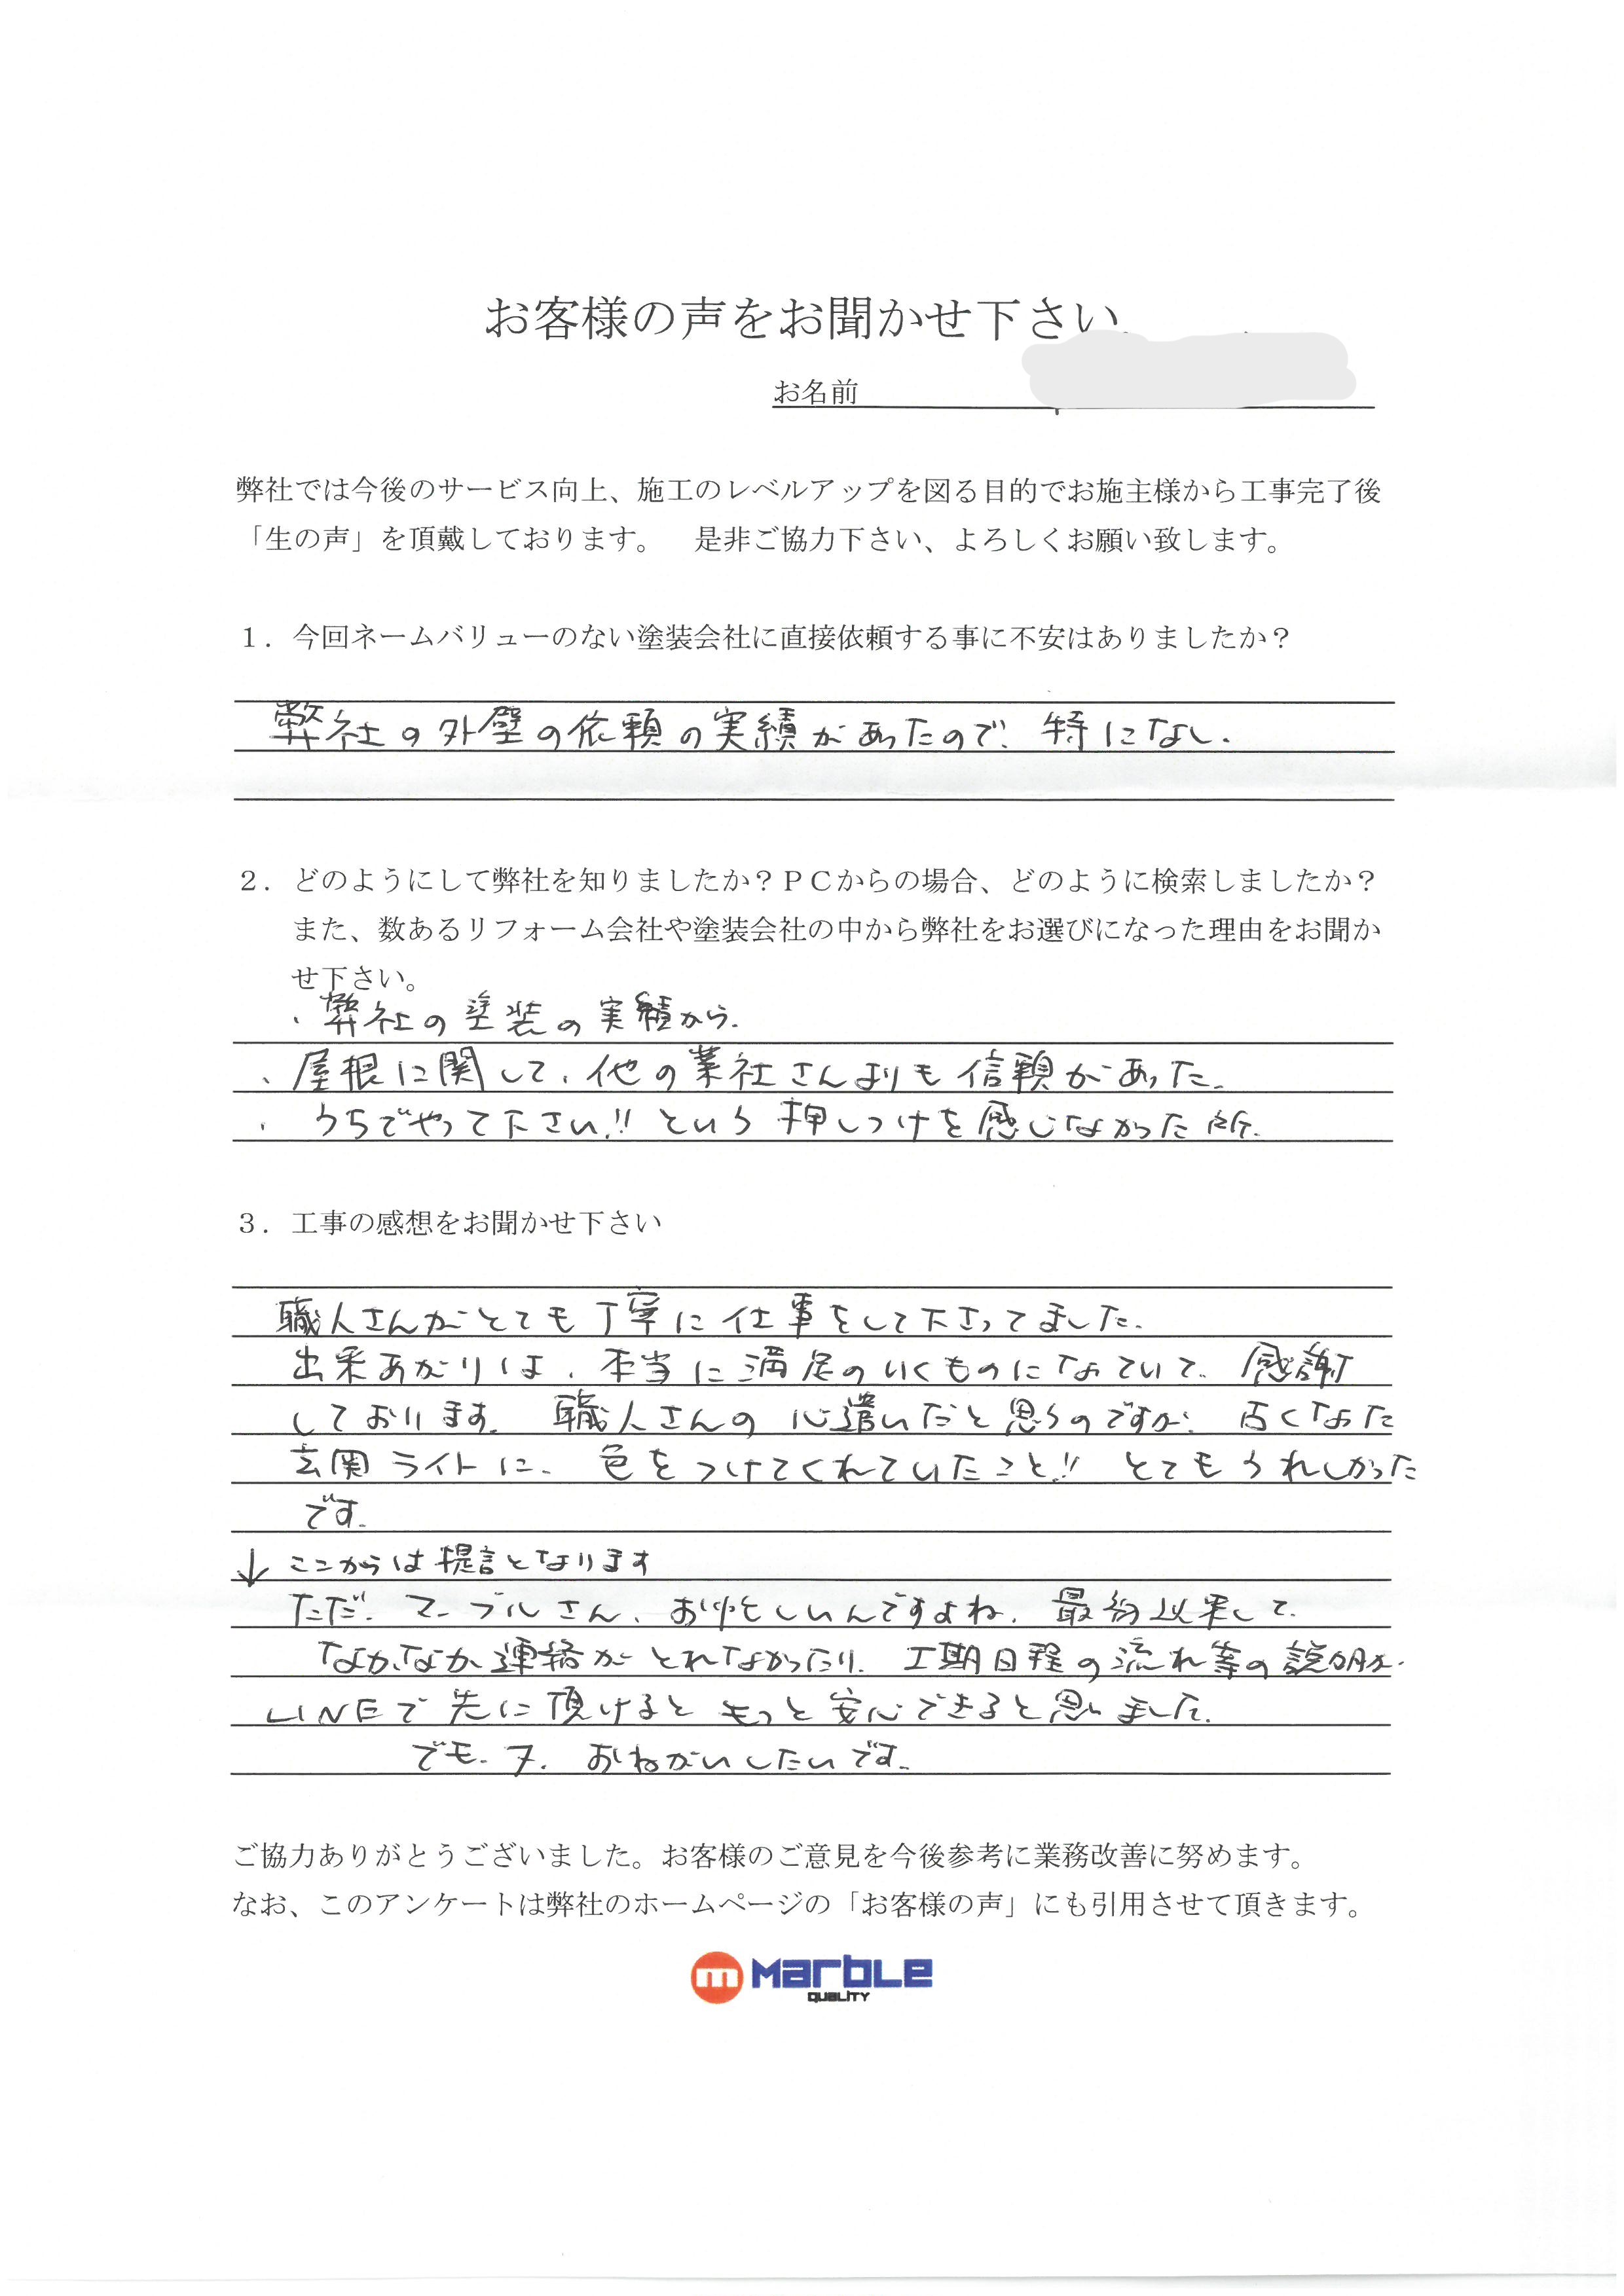 お客様の声をお聞かせ下さい
お名前
弊社では今後のサービス向上、施工のレベルアップを図る目的でお施主様から工事完了後
「生の声」を頂戴しております。 是非ご協力下さい、よろしくお願い致します。
１．今回ネームバリューのない塗装会社に直接依頼する事に不安はありましたか？
弊社の外壁の依頼の実績があったので、特になし.
２．どのようにして弊社を知りましたか？ＰＣからの場合、どのように検索しましたか？
また、数あるリフォーム会社や塗装会社の中から弊社をお選びになった理由をお聞か
せ下さい。
・弊社の塗装の実績から.
・屋根に関して、他の業社さんよりも信頼があった.
・うちでやって下さい!!という押しつけを感じなかった所.
３．工事の感想をお聞かせ下さい
職人さんがとても丁寧に仕事をして下さってました.
出来あがりは、本当に満足のいくものになっていて、感謝
しております. 職人さんの心遣いだと思うのですが、古くなった
玄関ライトに、色をつけてくれていたこと!! とてもうれしかった
です.
↓ ここからは提言となります
ただ、マーブルさん、お忙しいんですよね、最初以来して、
なかなか連絡がとれなかったり、工期日程の流れ等の説明が、
LINEで先に頂けるともっと安心できると思いました.
でも、又、おねがいしたいです.
ご協力ありがとうございました。お客様のご意見を今後参考に業務改善に努めます。
なお、このアンケートは弊社のホームページの「お客様の声」にも引用させて頂きます。
m Marble
QUALITY